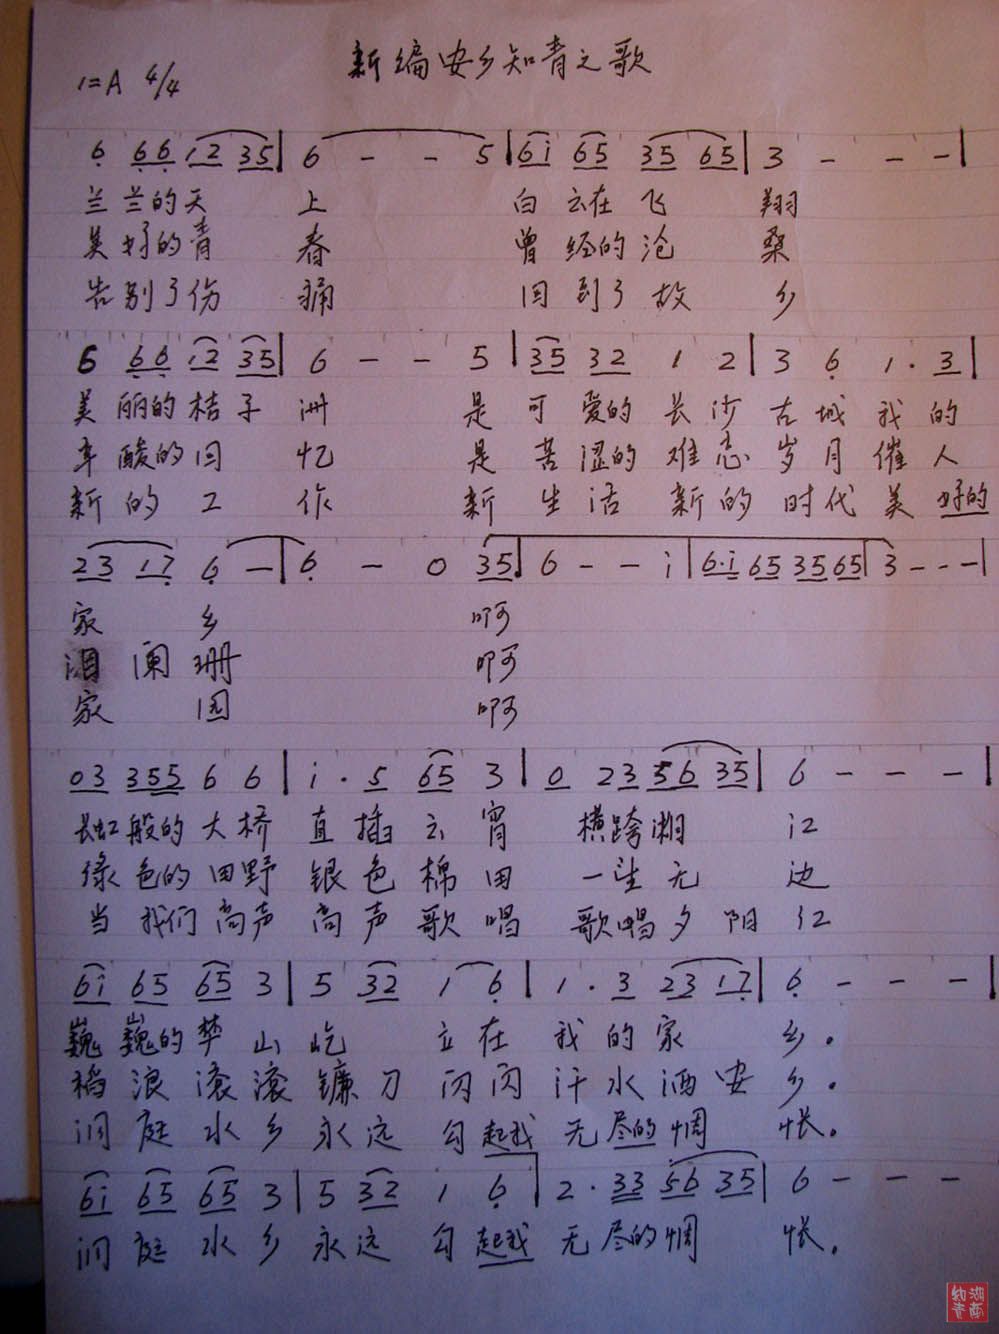 新编安乡知青之歌
1=A 4/4
6 66 12 35 | 6 - - 5 | 6i 65 35 65 | 3 - - - |
兰兰的天 上 白云在飞 翔
美好的青 春 曾经的沧 桑
告别了伤 痛 回到了故 乡
6 66 12 35 | 6 - - 5 | 35 32 1 2 | 3 6 1. 3 |
美丽的桔子洲 是可爱的长沙古城我的
辛酸的回忆 是苦涩的难忘岁月催人
新的工作 新生活新的时代美好的
23 17 6 - | 6 - 0 35 | 6 - - i | 6.i 65 35 65 | 3 - - - |
家 乡 啊
泪阑珊 啊
家 园 啊
03 355 6 6 | i . 5 65 3 | 0 23 56 35 | 6 - - - |
长虹般的大桥直插云霄 横跨湘 江
绿色的田野银色棉田 一望无 边
当我们高声高声歌唱 歌唱夕阳江
6i 65 65 3 | 5 32 1 6 | 1 . 3 23 17 | 6 - - - |
巍巍的梦山屹 立在我的家 乡。
稻浪滚滚镰刀闪闪汗水洒安乡。
洞庭水乡永远勾起我无尽的惆 怅。
6i 65 65 3 | 5 32 1 6 | 2 . 33 56 35 | 6 - - - |
洞庭水乡永远勾起我无尽的惆 怅。
湖南
知青